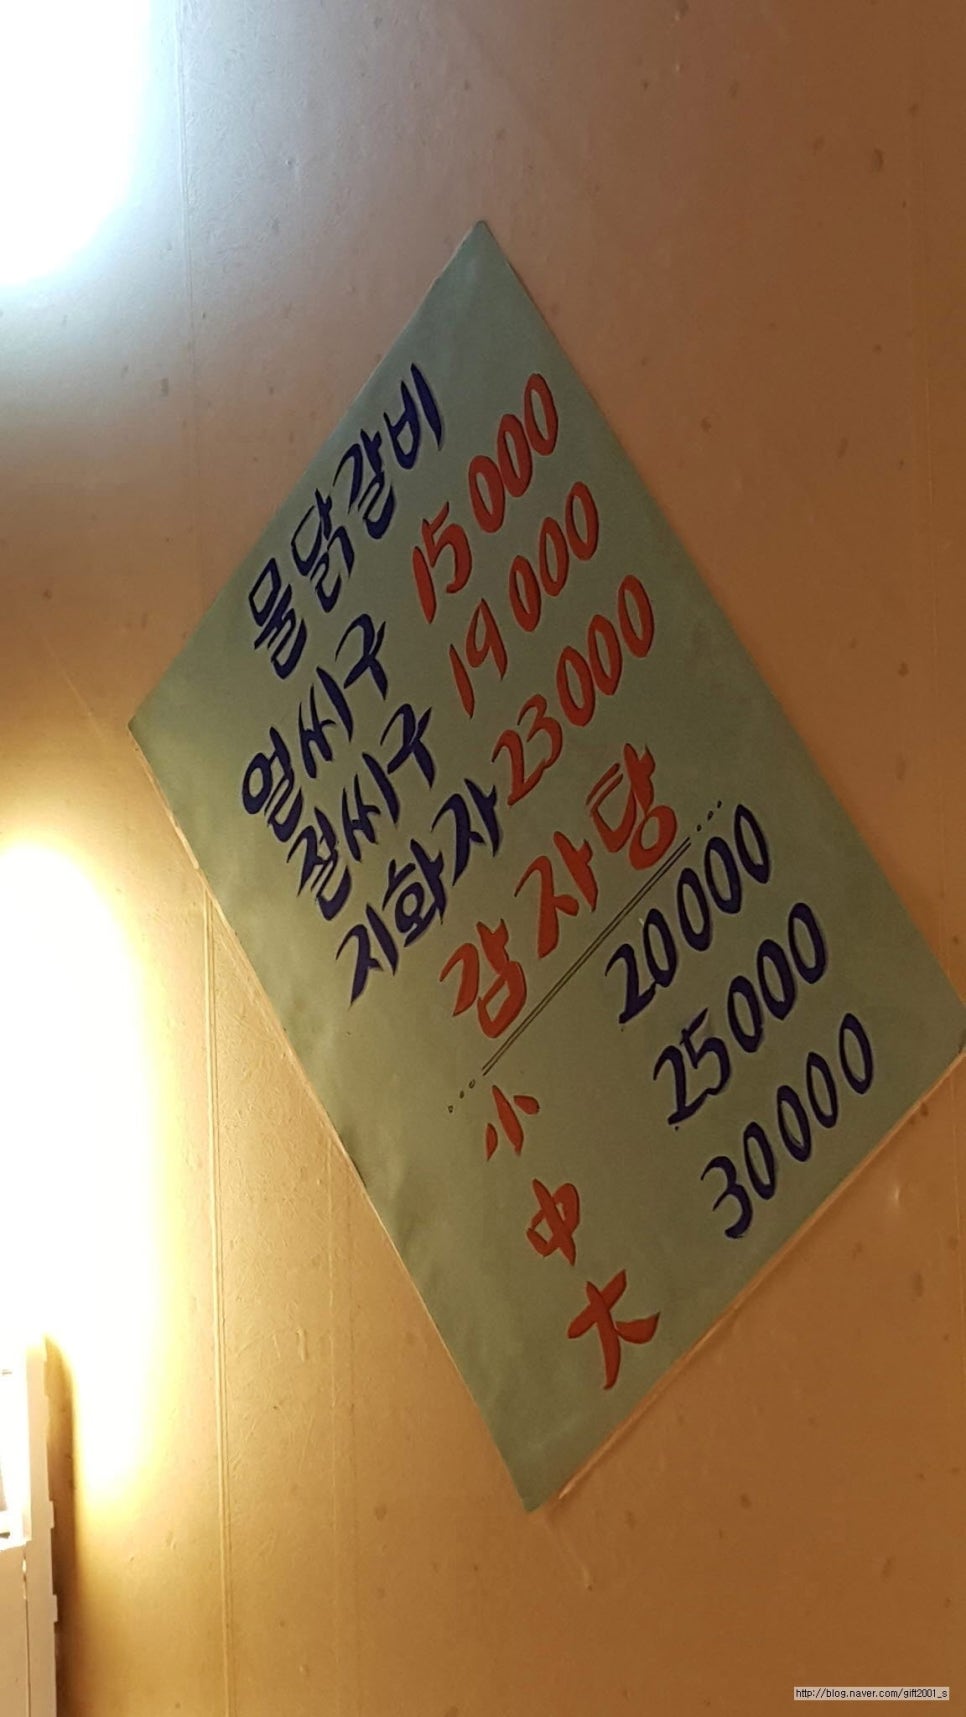 물닭갈비
얼씨구 15000
절씨구 19000
지화자 23000
감자탕
小 20000
中 25000
大 30000
http://blog.naver.com/gift2001_s